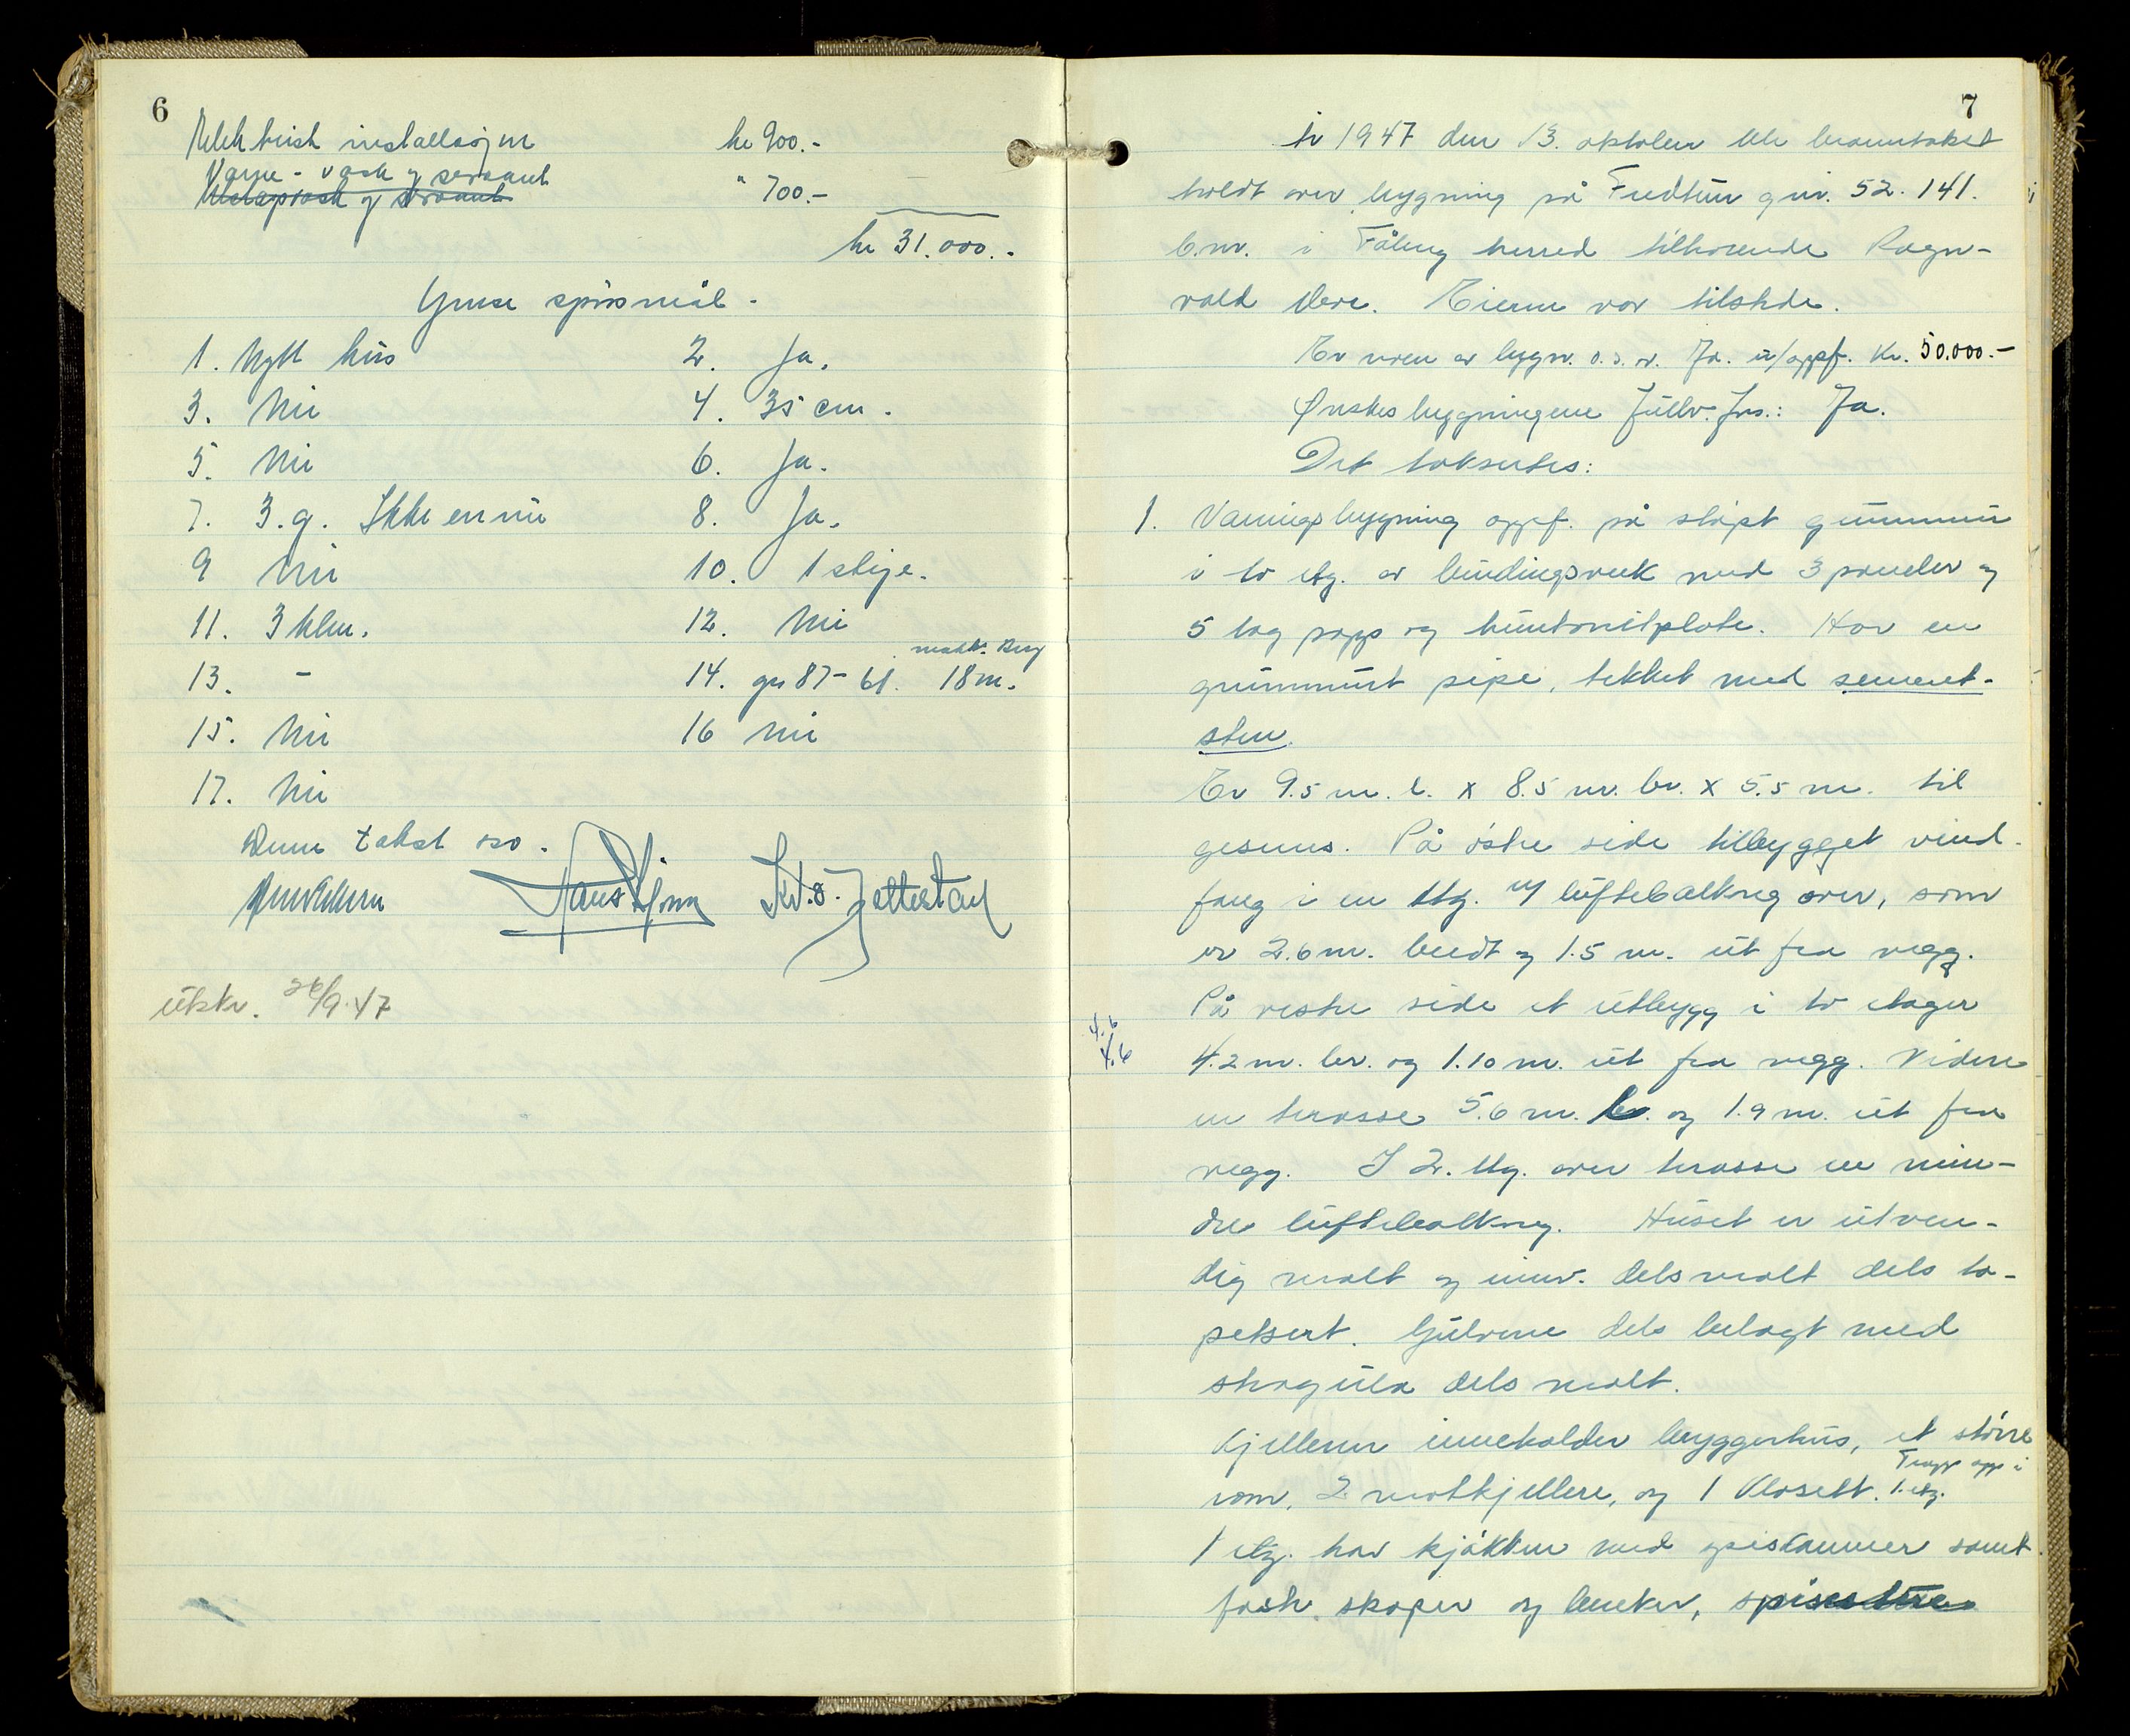 6
Elektrisk installasjon kr 900.-
Varme-vask og servant " 700.-
kr 31.000.-
Ymse spörsmål -
1. Nytt hus 2. Ja.
3. Nei 4. 35 cm.
5. Nei 6. Ja.
7. 3.g. Ikke ennu 8. Ja.
9 Nei 10. 1 stige.
11. 3 klm. 12. Nei
13. - 14. gr 87-61. 18m.
15. Nei 16 Nei
17. Nei
Denne takst oso.
utskr. 26/9.47
7
År 1947 den 13. oktober ble branntakst
holdt over bygning på Fredtun gnr. 52. 141.
b.nr. i Fåberg herred tilhørende Ragn-
vald Vere. Eieren var tilstede.
Er noen av bygn. o.s.v. Ja. u/oppf. Kr. 50.000.-
Ønskes bygningene fullv. frs.: Ja.
Det taksertes:
1. Våningsbygning oppf. på støpt grunnmur
i to etg. av bindingsverk med 3 paneler og
5 lag papp og huntonitplate. Har en
grunnmurt pipe, tekket med sement-
sten.
Er 9.5 m. l. x 8.5 m. br. x 5.5 m. til
gesims. På östre side tilbygget vind-
fang i en etg. m/ luftebalkong over, som
er 2.6 m. bredt og 1.5 m. ut fra vegg.
På vestre side et utbygg i to etager
4.6
4.6
4.2 m. br. og 1.10 m. ut fra vegg. Videre
en terasse 5.6 m. br. og 1.9 m. ut fra
vegg. I 2. etg. over terasse en min-
dre luftebalkong. Huset er utven-
dig malt og innv. dels malt dels ta-
petsert. Gulvene dels belagt med
stragula dels malt.
Kjelleren inneholder bryggerhus, et större
rom, 2 matkjellere, og 1 klosett. Trapp opp i
1. etg.
1 etg. har kjökken med spiskammer samt
faste skaper og benker, spisestue